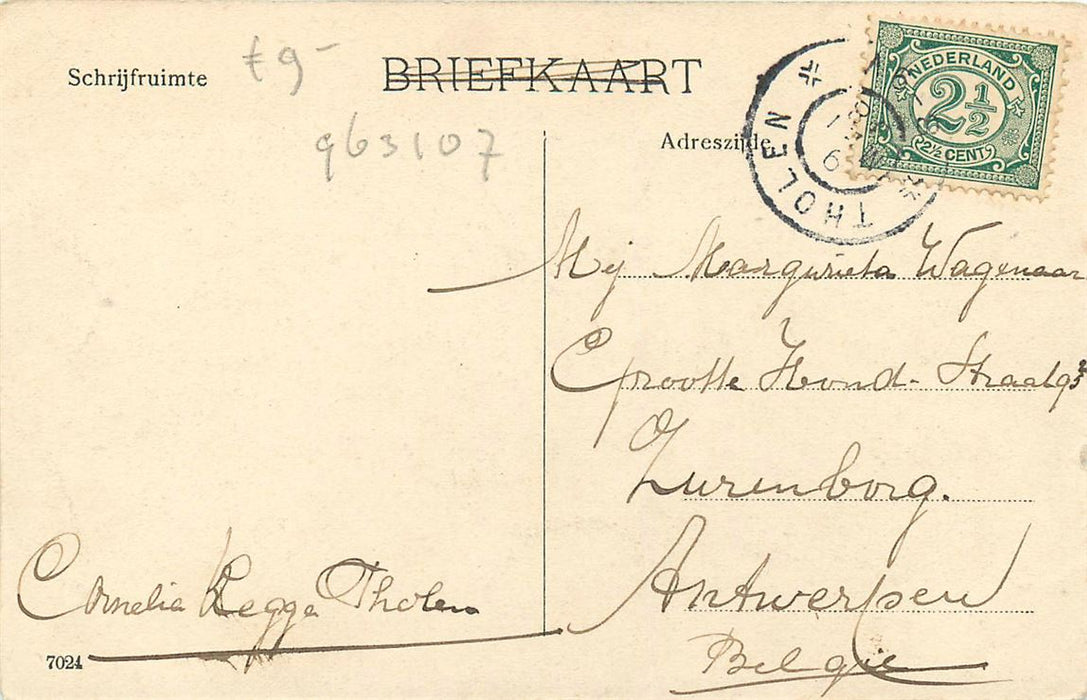 Schrijfruimte
BRIEFKAART
963107
Adreszijde
THOLEN
NEDERLAND
2½
2½ CENT
Mej Margurieta Wagenaar
Grootte Hond-Straat
Zurenborg.
Antwerpen
Belgie
Cornelia Kegge Tholen
7024